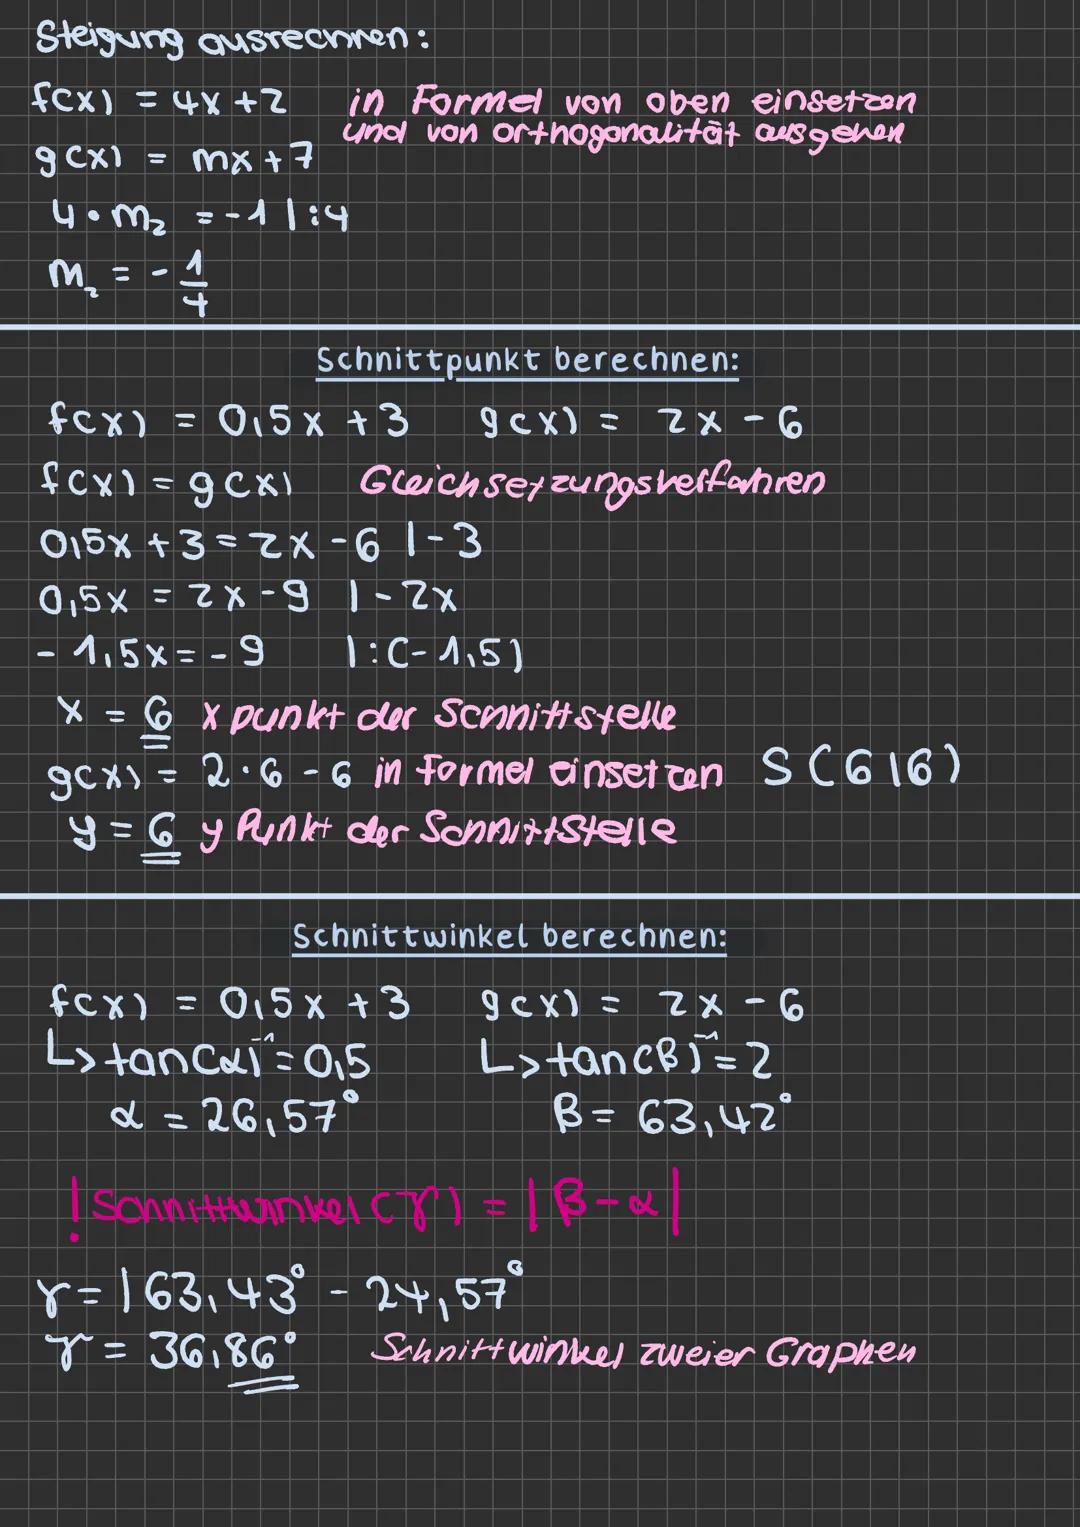 Steigung ausrechnen:
f(x) = 4x + 2 in Formel von oben einsetzen
und von orthogonalität ausgehen
g(x) = mx + 7
4 • m₂ = -1 | :4
m₂ = - 1/4
Schnittpunkt berechnen:
f(x) = 0,5x + 3 g(x) = 2x - 6
f(x) = g(x) Gleichsetzungsverfahren
0,5x + 3 = 2x - 6 | -3
0,5x = 2x - 9 | - 2x
- 1,5x = - 9 | : (- 1,5)
x = 6 x punkt der Schnittstelle
g(x) = 2 · 6 - 6 in formel einsetzen S (6 | 6)
y = 6 y Punkt der Schnittstelle
Schnittwinkel berechnen:
f(x) = 0,5x + 3 g(x) = 2x - 6
↳ tan(α)⁻¹ = 0,5 ↳ tan(β)⁻¹ = 2
α = 26,57° β = 63,42°
! Schnittwinkel (γ) = | β - α |
γ = | 63,43° - 24,57°
γ = 36,86° Schnittwinkel zweier Graphen